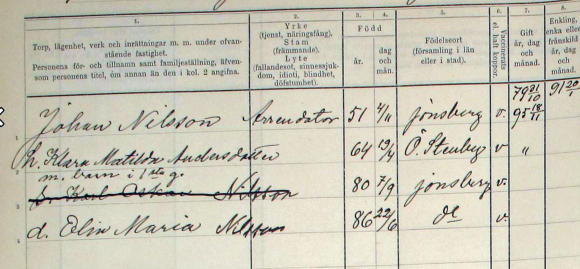 1. 2. 3. 4. 5. 6. 7. 8.
Torp, lägenhet, verk och inrättningar m. m. under ofvanstående fastighet.
Personens för- och tillnamn samt familjeställning, äfvensom personens titel, om annan än den i kol. 2 angifna.
Yrke
(tjenst, näringsfång).
Stam
(främmande).
Lyte
(fallandesot, sinnessjukdom, idioti, blindhet, döfstumhet).
Född
år.
dag och mån.
Födelseort
(församling i län eller i stad).
Vaccinerats el. haft koppor.
Gift
år, dag och månad.
Enkling, enka eller frånskild år, dag och månad.
79 31/10 91 20/1
1 Johan Nilsson Arrendator 51 4/11 Jonsberg v. 95 18/11
2 h. Klara Matilda Andersdotter 64 19/4 Ö. Stenby v "
m. barn i 1sta g.
3 s. Karl Oskar Nilsson 80 7/9 Jonsberg v.
4 d. Elin Maria Nilsson 86 22/6 de v.